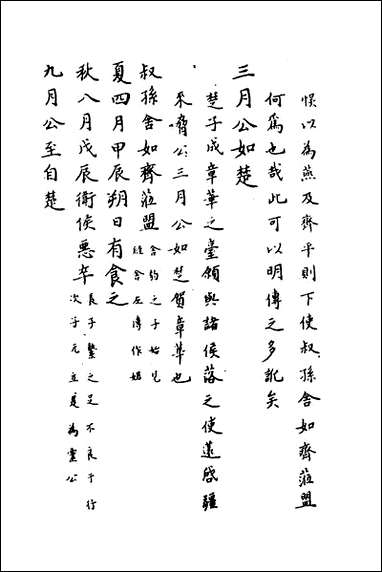 悮以為燕及齊平則下使叔孫舍如齊蒞盟
何爲也哉此可以明傳之多訛矣
三月公如楚
楚子成章華之臺願與諸侯落之使薳啓疆
来脅公三月公如楚賀章華也
叔孫舍如齊蒞盟 舍豹之子始見
經舍左傳作婼
夏四月甲辰朔日有食之
秋八月戊辰衛侯惡卒 長子縶之足不良于行
次子元立是為靈公
九月公至自楚